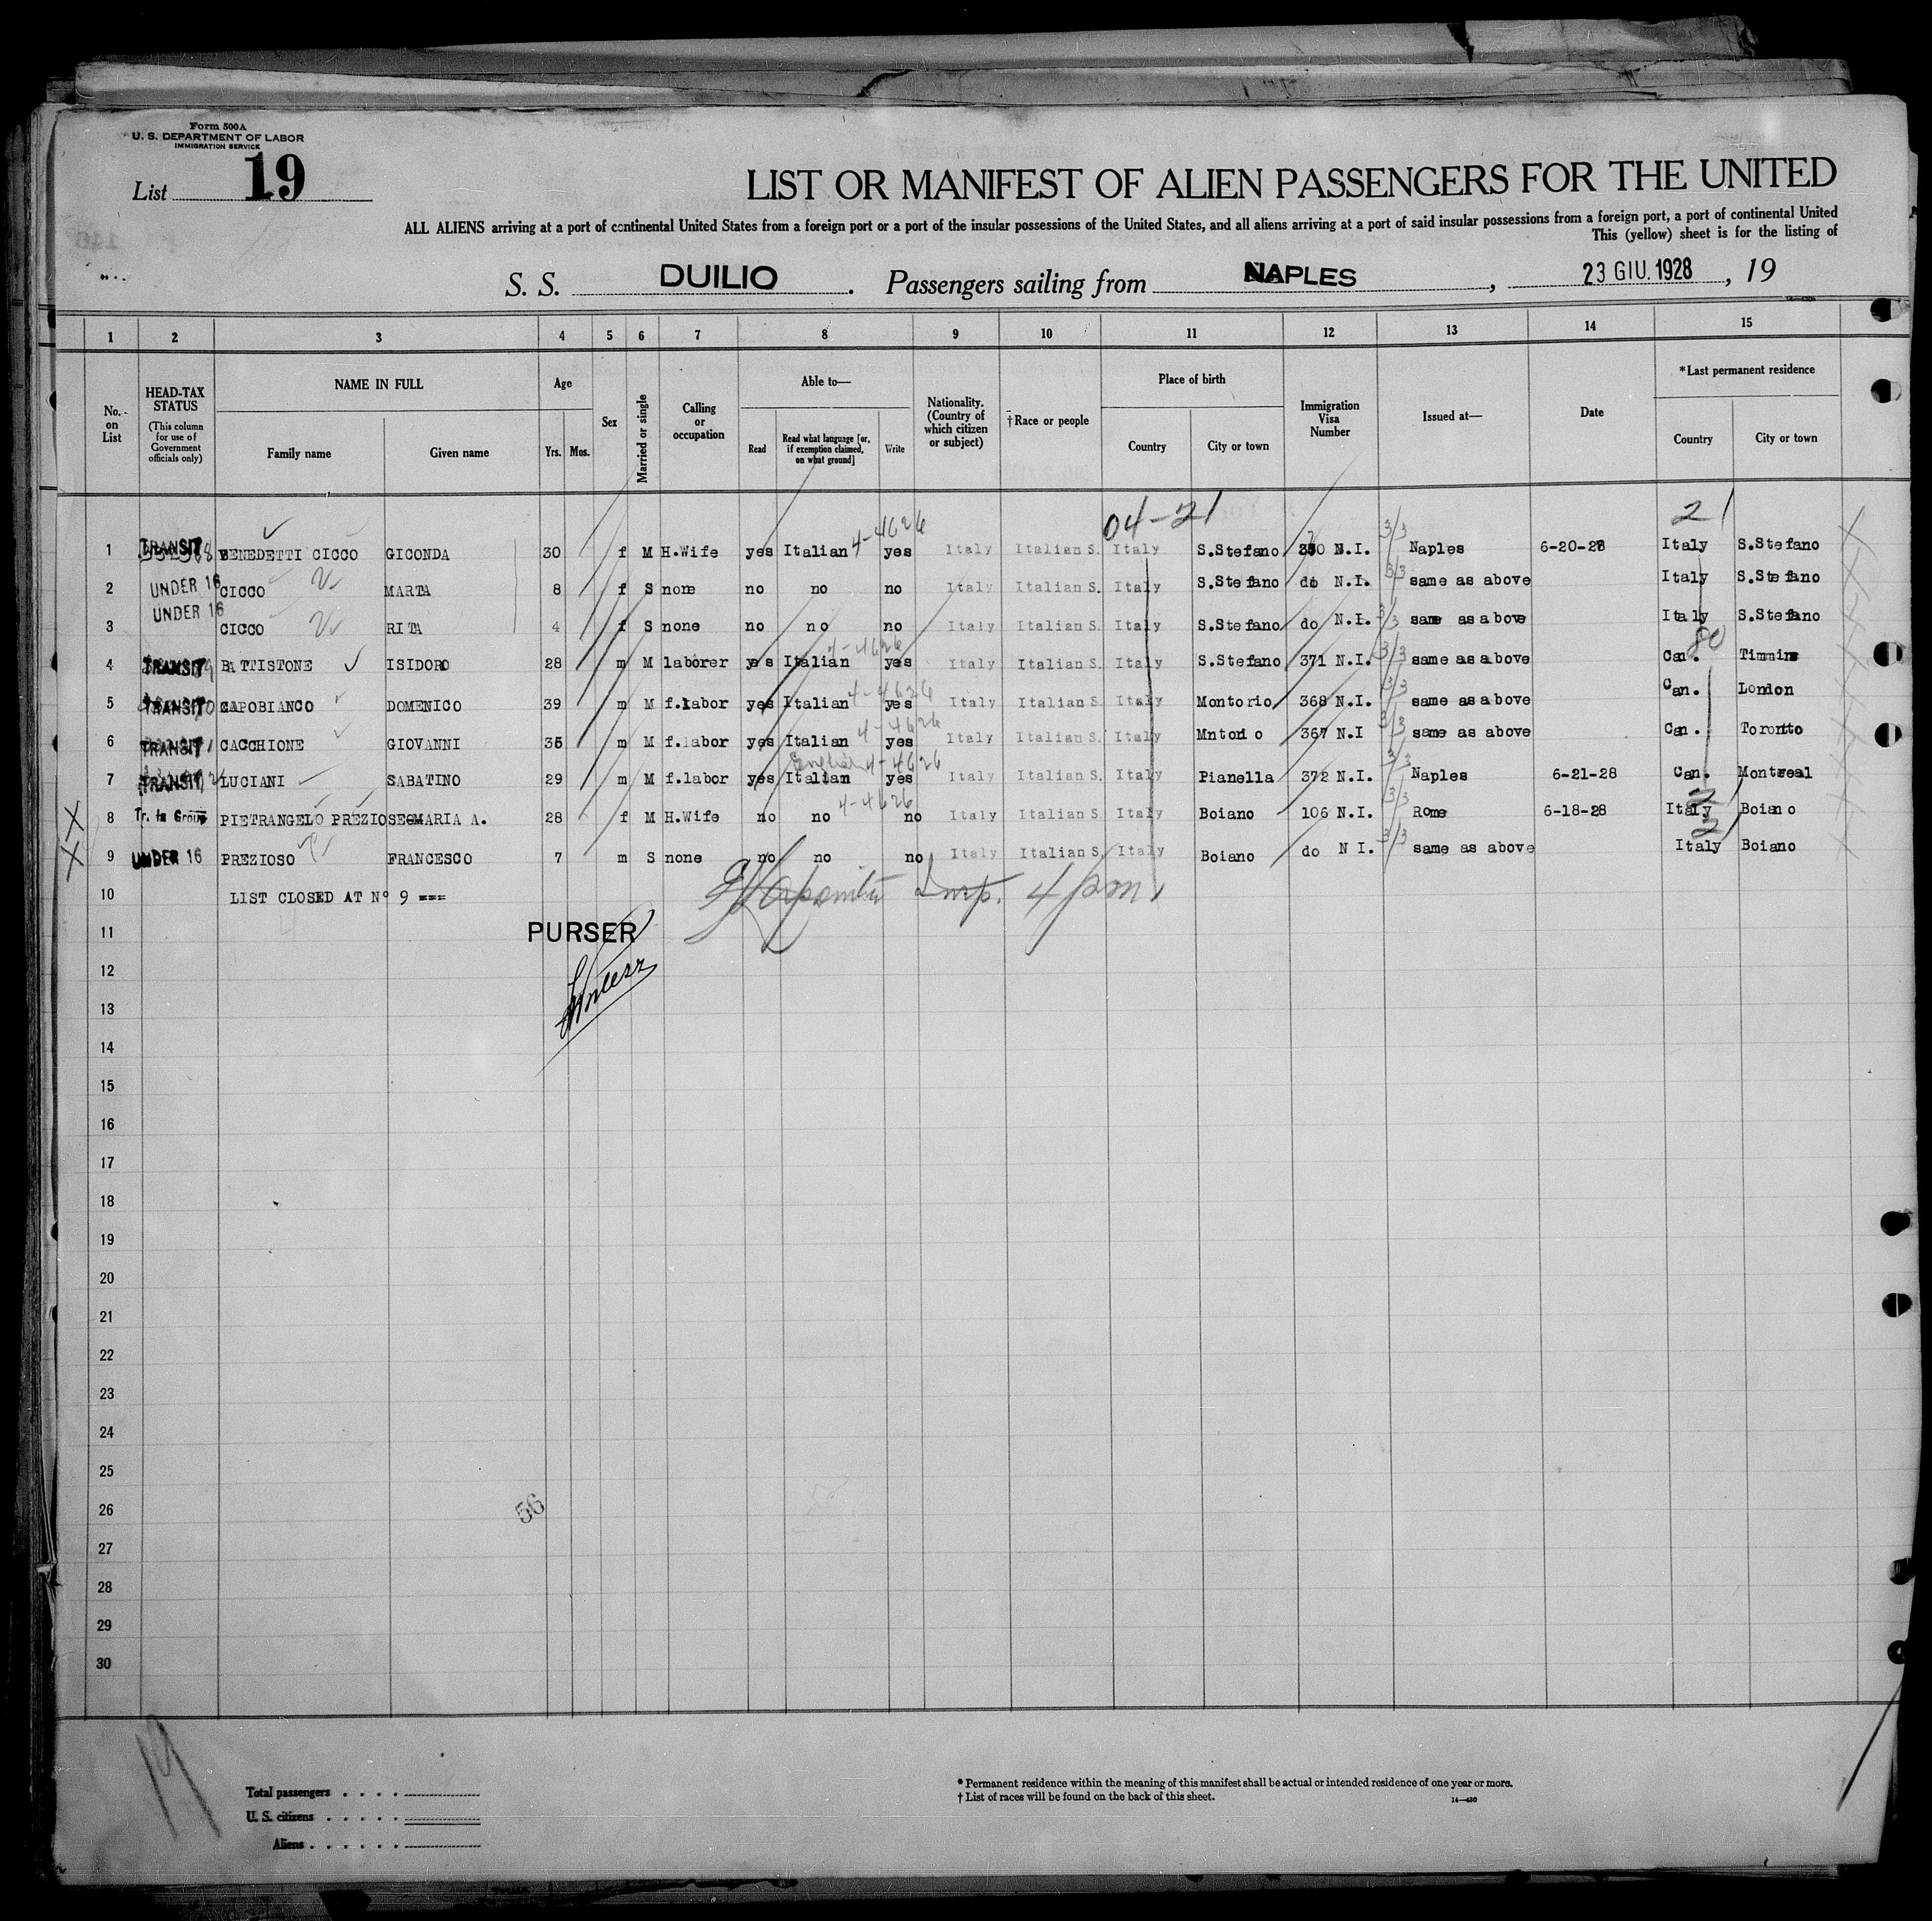 Form 500A
U. S. DEPARTMENT OF LABOR
IMMIGRATION SERVICE
List 19
LIST OR MANIFEST OF ALIEN PASSENGERS FOR THE UNITED
ALL ALIENS arriving at a port of continental United States from a foreign port or a port of the insular possessions of the United States, and all aliens arriving at a port of said insular possessions from a foreign port, a port of continental United
This (yellow) sheet is for the listing of
S. S. DUILIO. Passengers sailing from NAPLES, 23 GIU. 1928, 19
1 2 3 4 5 6 7 8 9 10 11 12 13 14 15
No. on List
HEAD-TAX STATUS (This column for use of Government officials only)
NAME IN FULL Family name Given name
Age Yrs. Mos.
Sex
Married or single
Calling or occupation
Able to— Read Read what language [or, if exemption claimed, on what ground] Write
Nationality. (Country of which citizen or subject)
†Race or people
Place of birth Country City or town
Immigration Visa Number
Issued at—
Date
*Last permanent residence Country City or town
04-21 21
1 TRANSIT BENEDETTI CICCO GICONDA 30 f M H.Wife yes Italian 4-4626 yes Italy Italian S. Italy S.Stefano N.I. 3/3 Naples 6-20-28 Italy S.Stefano
2 UNDER 16 CICCO MARTA 8 f S none no no no Italy Italian S. Italy S.Stefano do N.I. 3/3 same as above Italy S.Stefano
3 UNDER 16 CICCO RITA 4 f S none no no no Italy Italian S. Italy S.Stefano do N.I. 3/3 same as above Italy S.Stefano
80
4 TRANSIT BATTISTONE ISIDORO 28 m M laborer yes Italian 4-4626 yes Italy Italian S. Italy S.Stefano 371 N.I. 3/3 same as above Can. Timmins
5 TRANSIT CAPOBIANCO DOMENICO 39 m M f.labor yes Italian 4-4626 yes Italy Italian S. Italy Montorio 368 N.I. 3/3 same as above Can. London
6 TRANSIT CACCHIONE GIOVANNI 35 m M f.labor yes Italian 4-4626 yes Italy Italian S. Italy Mntorio 367 N.I 3/3 same as above Can. Toronto
7 TRANSIT LUCIANI SABATINO 29 m M f.labor yes Italian English 4-4626 yes Italy Italian S. Italy Pianella 372 N.I. 3/3 Naples 6-21-28 Can. Montreal
8 Tr. in Group PIETRANGELO PREZIOSO MARIA A. 28 f M H.Wife no no 4-4626 no Italy Italian S. Italy Boiano 106 N.I. 3/3 Rome 6-18-28 Italy Boiano
9 UNDER 16 PREZIOSO FRANCESCO 7 m S none no no no Italy Italian S. Italy Boiano do N I. 3/3 same as above Italy Boiano
10 LIST CLOSED AT N° 9 ===
Insp. 4 pm
11 PURSER
12
13
14
15
16
17
18
19
20
21
22
23
24
25
26
56
27
28
29
30
19
Total passengers . . . .
U. S. citizens . . . . .
Aliens . . . . . .
* Permanent residence within the meaning of this manifest shall be actual or intended residence of one year or more.
† List of races will be found on the back of this sheet.
14—430